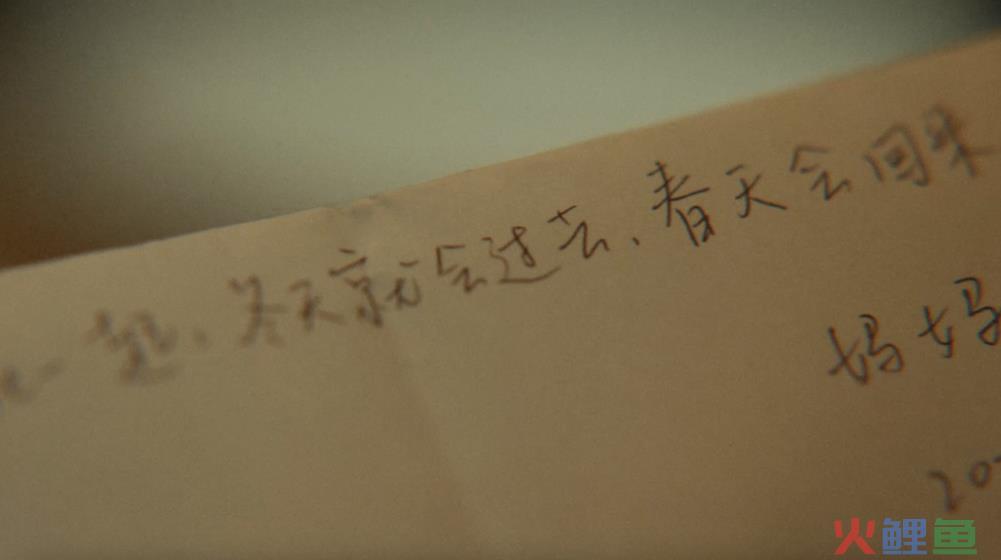 一起、冬天就会过去、春天会回来
妈妈
20
火鲤鱼